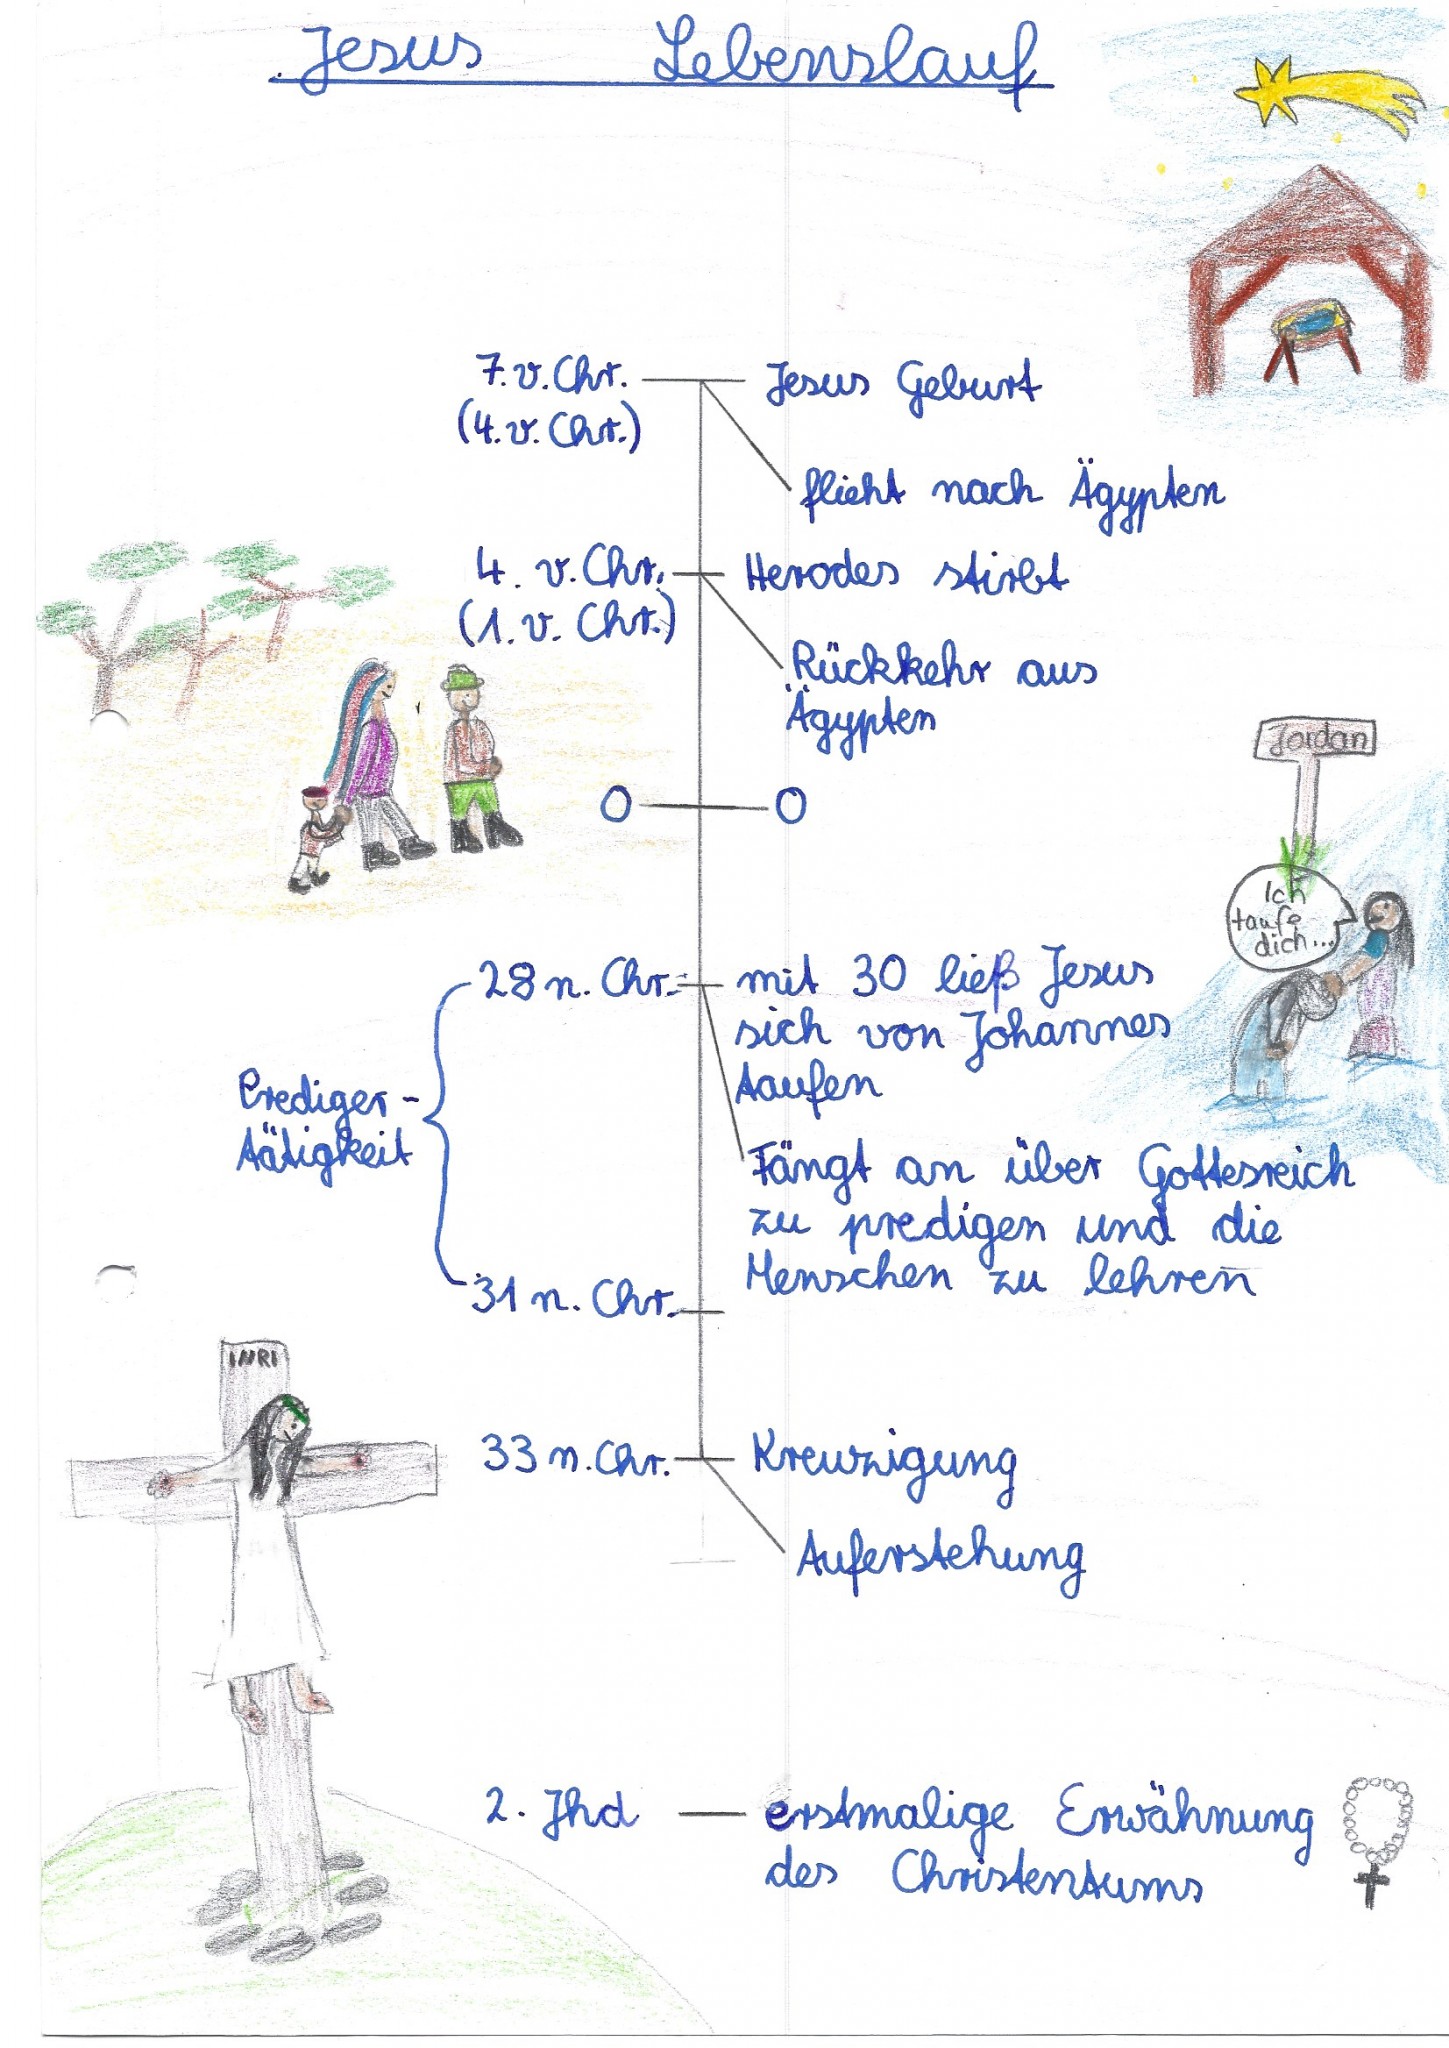 Jesus Lebenslauf
7. v. Chr. Jesus Geburt
(4. v. Chr.)
flieht nach Ägypten
4. v. Chr. Herodes stirbt
(1. v. Chr.)
Rückkehr aus
Ägypten
0 0
Jordan
Ich
taufe
dich...
28 n. Chr. mit 30 ließ Jesus
sich von Johannes
taufen
Prediger-
tätigkeit
Fängt an über Gottesreich
zu predigen und die
Menschen zu lehren
31 n. Chr.
INRI
33 n. Chr. Kreuzigung
Auferstehung
2. Jhd erstmalige Erwähnung
des Christentums